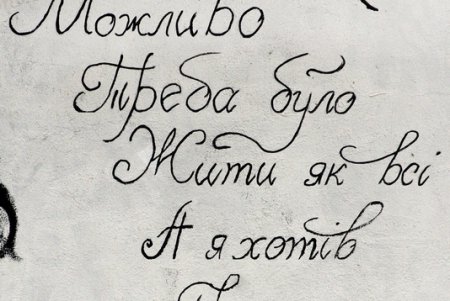 Можливо
Треба було
Жити як всі
А я хотів